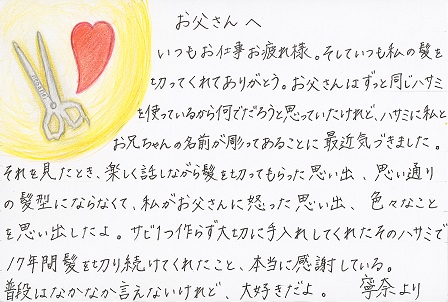 お父さんへ
いつもお仕事お疲れ様。そしていつも私の髪を
切ってくれてありがとう。お父さんはずっと同じハサミ
を使っているから何でだろうと思っていたけれど、ハサミに私と
お兄ちゃんの名前が彫ってあることに最近気づきました。
それを見たとき、楽しく話しながら髪を切ってもらった思い出、思い通り
の髪型にならなくて、私がお父さんに怒った思い出、色々なこと
を思い出したよ。サビ1つ作らず大切に手入れしてくれたそのハサミで
17年間髪を切り続けてくれたこと、本当に感謝している。
普段はなかなか言えないけれど、大好きだよ。 寧奈より